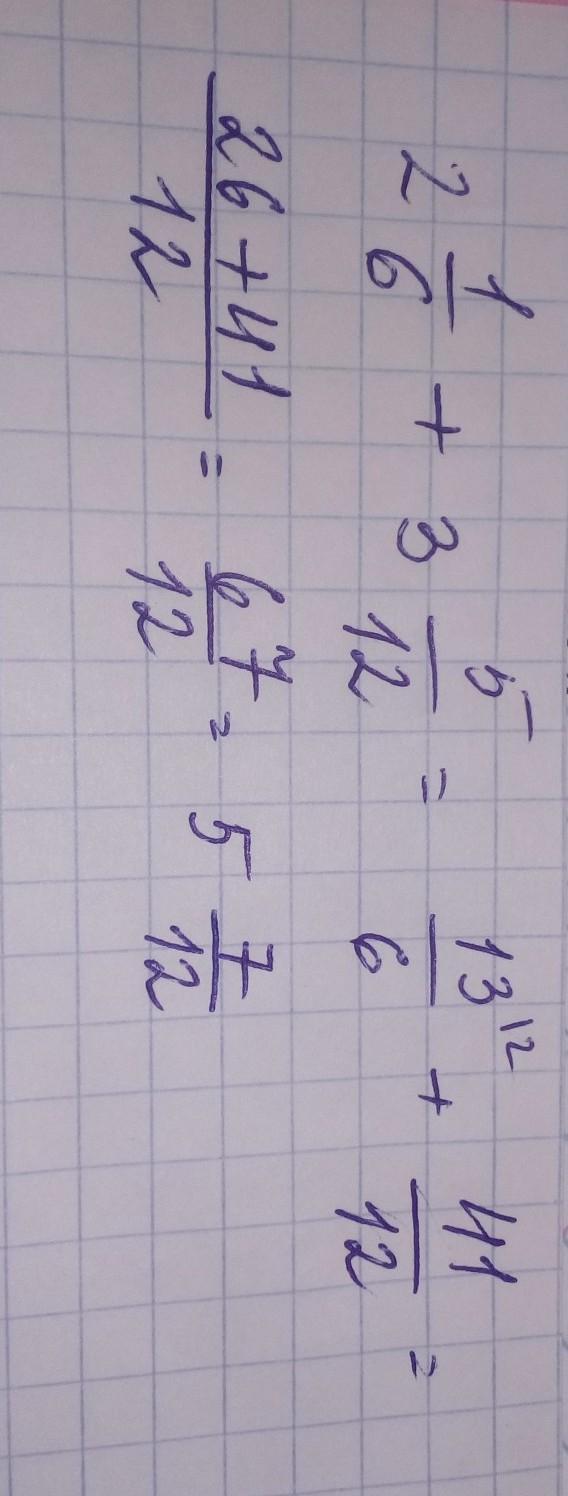 2 1/6 + 3 5/12 = 13^12/6 + 41/12 =
26+41/12 = 67/12 = 5 7/12